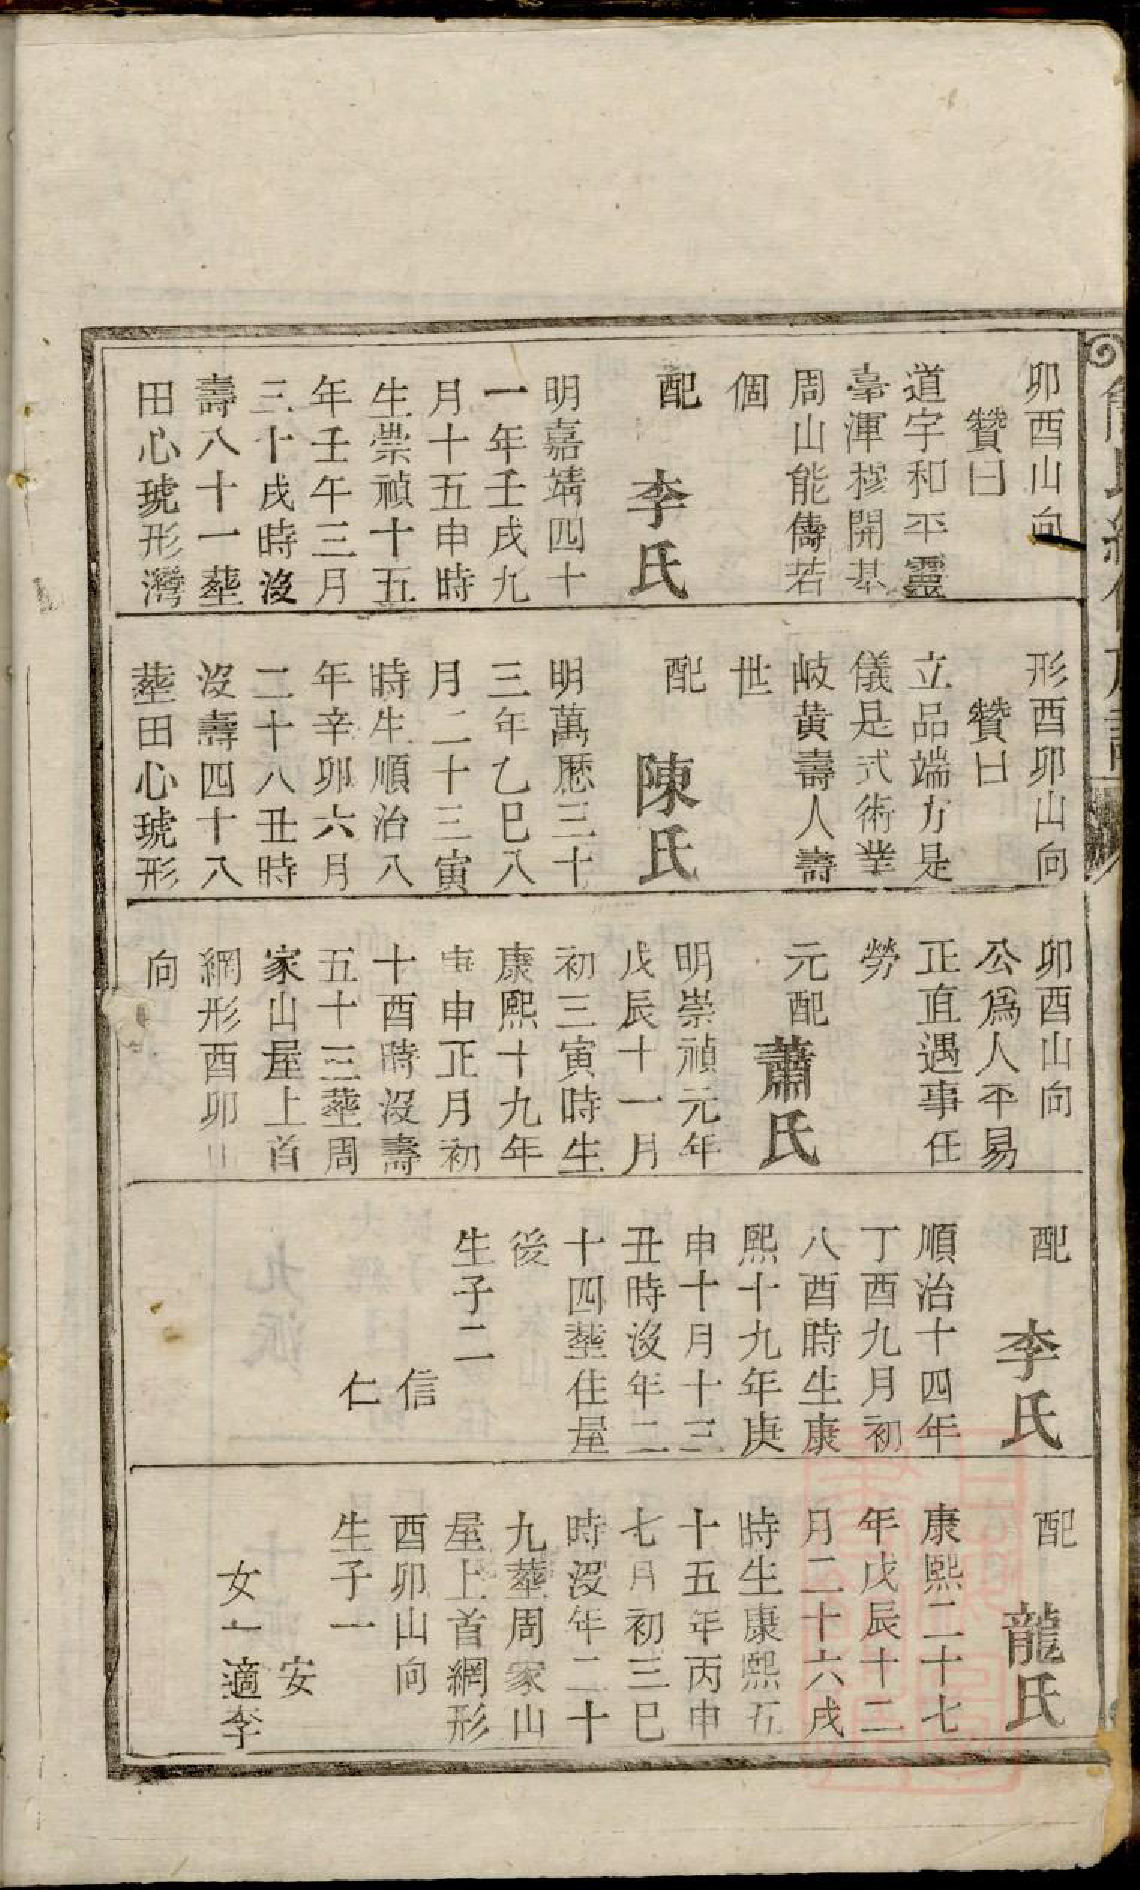 卯酉山向
贊曰
道宇和平靈
臺渾穆開基
周山能儔若
個
配
李氏
明嘉靖四十
一年壬戌九
月十五申時
生崇禎十五
年壬午三月
三十戌時沒
壽八十一塟
田心琥形灣
形酉卯山向
贊曰
立品端方是
儀是式術業
岐黃壽人壽
世
配
陳氏
明萬歷三十
三年乙巳八
月二十三寅
時生順治八
年辛卯六月
二十八丑時
沒壽四十八
塟田心琥形
卯酉山向
公爲人平易
正直遇事任
勞
元配
蕭氏
明崇禎元年
戊辰十一月
初三寅時生
康熙十九年
庚申正月初
十酉時沒壽
五十三塟周
家山屋上首
網形酉卯山
向
配
李氏
順治十四年
丁酉九月初
八酉時生康
熙十九年庚
申十月十三
丑時沒年二
十四塟住屋
後
生子二
信
仁
配
龍氏
康熙二十七
年戊辰十二
月二十六戌
時生康熙五
十五年丙申
七月初三巳
時沒年二十
九塟周家山
屋上首網形
酉卯山向
生子一
安
女一適李